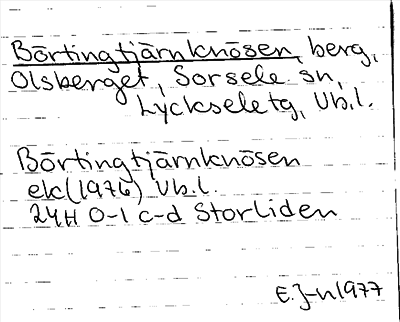 Börtingtjärnknösen, berg,
Olsberget, Sorsele sn,
Lycksele tg, Vb.l.
Börtingtjärnknösen
ek(1976) Vb.l.
24H 0-1 c-d Storliden
E.J-n 1977